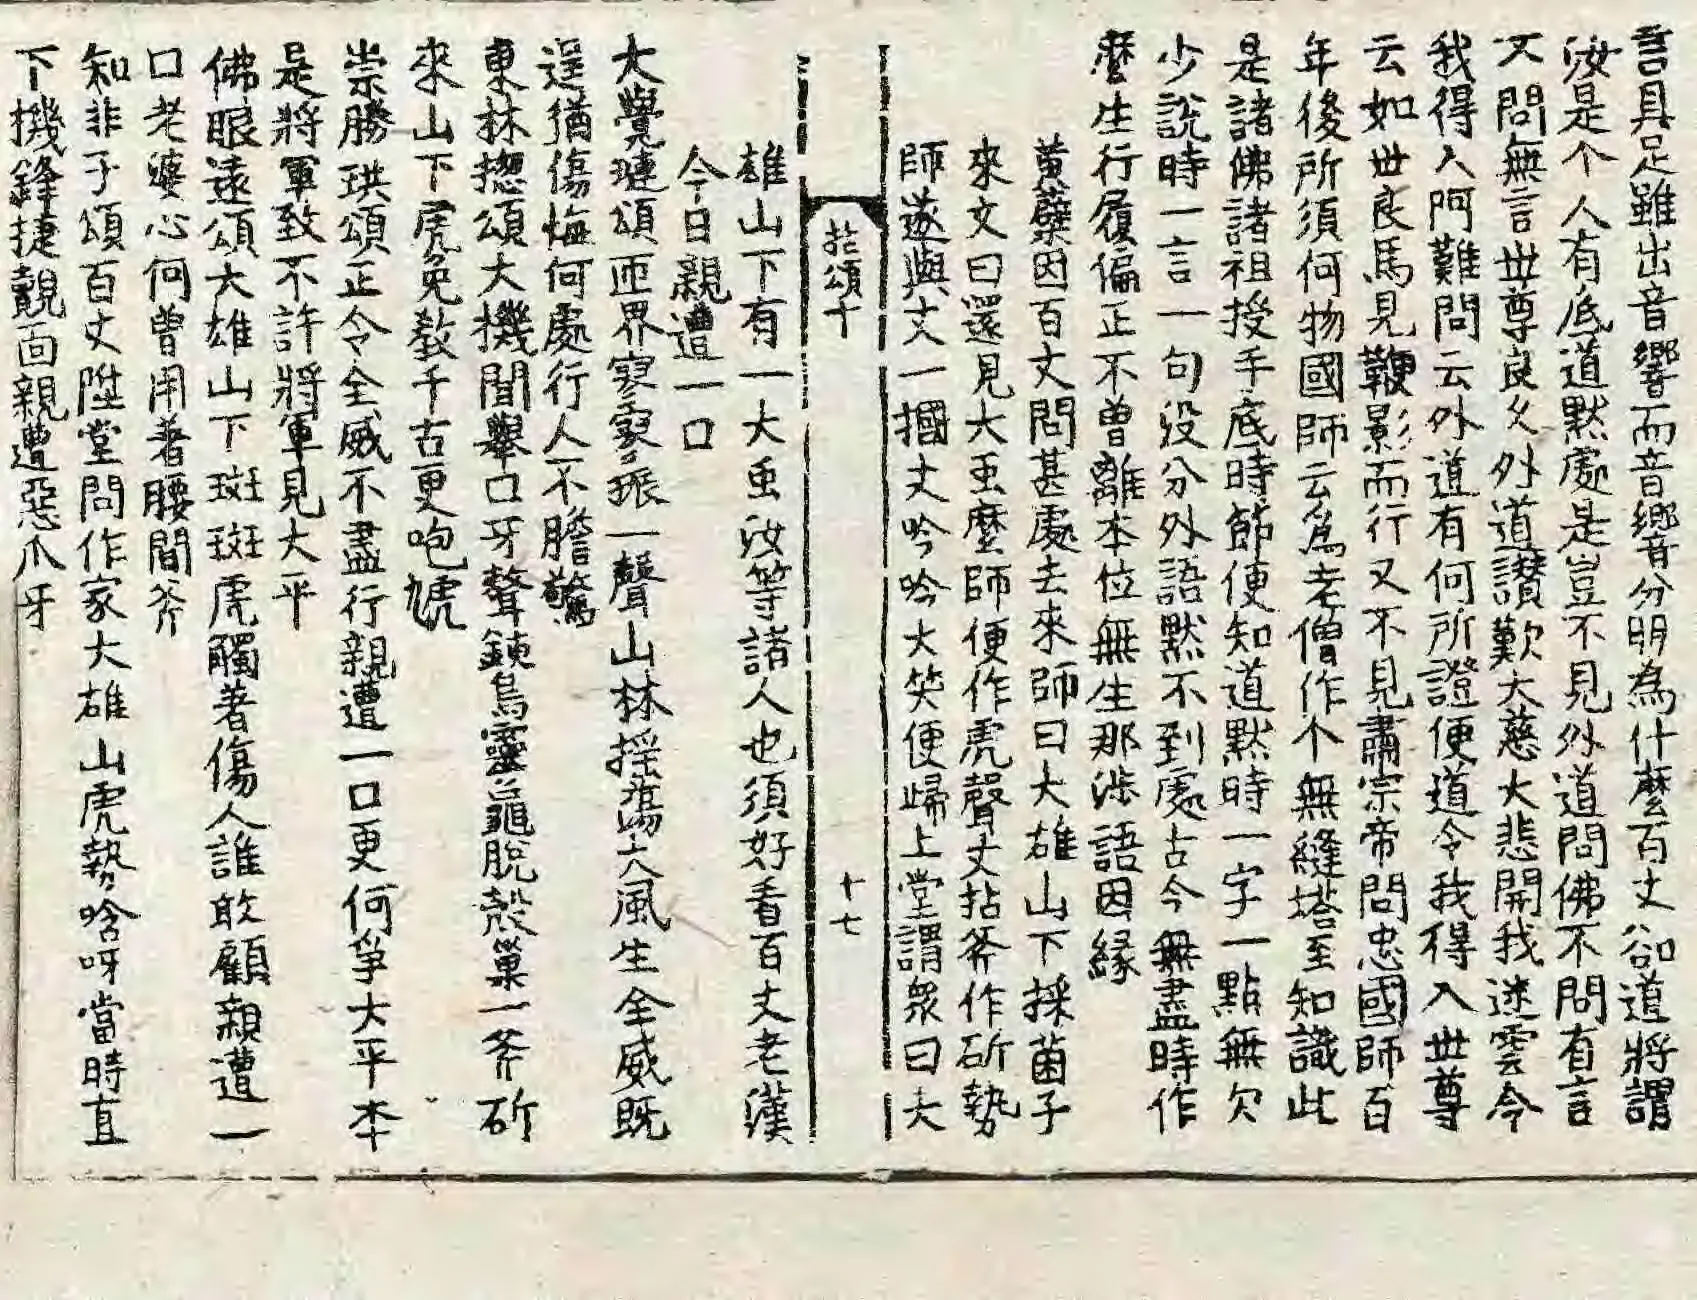 言具足雖出音響而音響分明為什麼百丈却道將謂
汝是个人有底道默處是豈不見外道問佛不問有言
不問無言世尊良久外道讚歎大慈大悲開我迷雲令
我得入阿難問云外道有何所證便道令我得入世尊
云如世良馬見鞭影而行又不見肅宗帝問忠國師百
年後所須何物國師云為老僧作个無縫塔至知識此
是諸佛諸祖授手底時節便知道默時一字一點無欠
少說時一言一句沒分外語默不到處古今無盡時作
麼生行履偏正不曾離本位無生那涉語因緣
黃蘗因百丈問甚處去來師曰大雄山下採菌子
來丈曰還見大䖝麼師便作虎聲丈拈斧作斫勢
師遂與丈一摑丈吟吟大笑便歸上堂謂眾曰大
拈頌十 十七
雄山下有一大䖝汝等諸人也須好看百丈老漢
今日親遭一口
大覺璉頌匝界寥寥振一聲山林揺蕩大風生全威既
逞猶傷悔何處行人不膽驚
東林揔頌大機閒擧口牙聱鐵烏靈龜脫殼巢一斧斫
來山下虎免教千古更咆虓
崇勝珙頌正令全威不盡行親遭一口更何爭大平本
是將軍致不許將軍見大平
佛眼遠頌大雄山下斑斑虎觸著傷人誰敢顧親遭一
口老婆心何曾用著腰間斧
知非子頌百丈陞堂問作家大雄山虎勢唅呀當時直
下機鋒捷覿面親遭惡爪牙